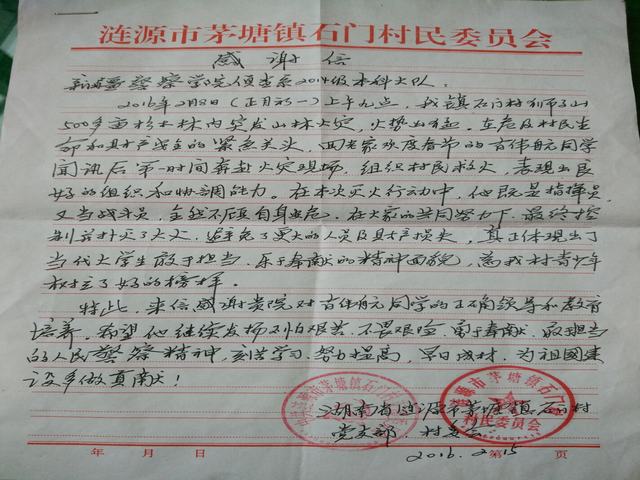 涟源市茅塘镇石门村民委员会
感谢信
新疆警察学院侦查系2014级本科大队:
2016年2月8日(正月初一)上午九点,我镇石门村狮子山
500多亩杉木林内突发山林火灾,火势凶猛。在危及村民生
命和财产安全的紧急关头,回老家欢度春节的吉伟航同学
闻讯后第一时间奔赴火灾现场,组织村民救火,表现出良
好的组织和协调能力。在本次灭火行动中,他既是指挥员,
又当战斗员,全然不顾自身安危。在大家的共同努力下,最终控
制并扑灭了大火,避免了更大的人员及财产损失,真正体现出了
当代大学生敢于担当、乐于奉献的精神面貌,为我村青少年
树立了好的榜样。
特此,来信感谢贵院对吉伟航同学的正确领导和教育
培养。希望他继续发扬不怕艰苦、不畏艰险、勇于奉献、敢担当
的人民警察精神,刻苦学习,努力提高,早日成材,为祖國建
设多做贡献!
湖南省涟源市茅塘镇石门村
党支部、村委会
2016.2.15
涟源市茅塘镇石门村
村民委员会
年 月 日 第 页